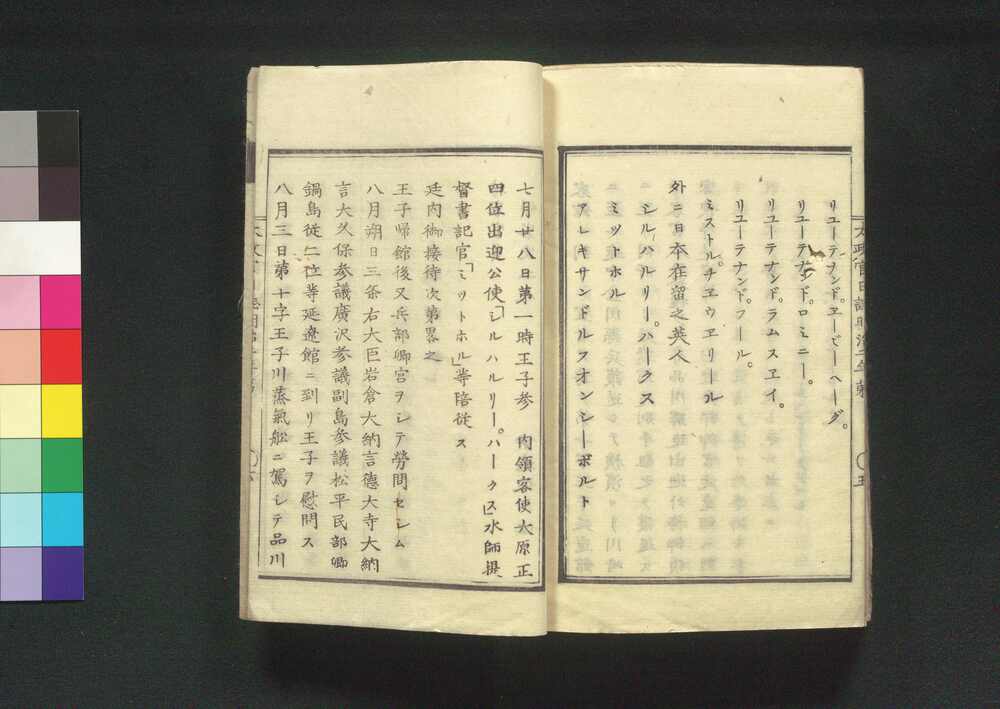 リユーテナンド。ヱービーヘーグ。
リユーテナンド。ロミニー。
リユーテナンド。ラムスヱイ。
リユーテナンド。フール。
ミストル。チヱウヱリール
外ニ日本在留之英人
シルハルリー。パークス
ミツトホル
アレキサンドルフオンシーボルト
七月廿八日第一時王子参 内領客使大原正
四位出迎公使「シルハルリー。パークス」水師提
督書記官「ミツトホル」等陪従ス
廷内御接待次第畧之
王子帰館後又兵部卿宮ヲシテ勞問セシム
八月朔日三条右大臣岩倉大納言德大寺大納
言大久保参議廣沢参議副島参議松平民部卿
鍋島従二位等延遼館ニ到リ王子ヲ慰問ス
八月三日第十字王子川蒸氣舩ニ駕シテ品川